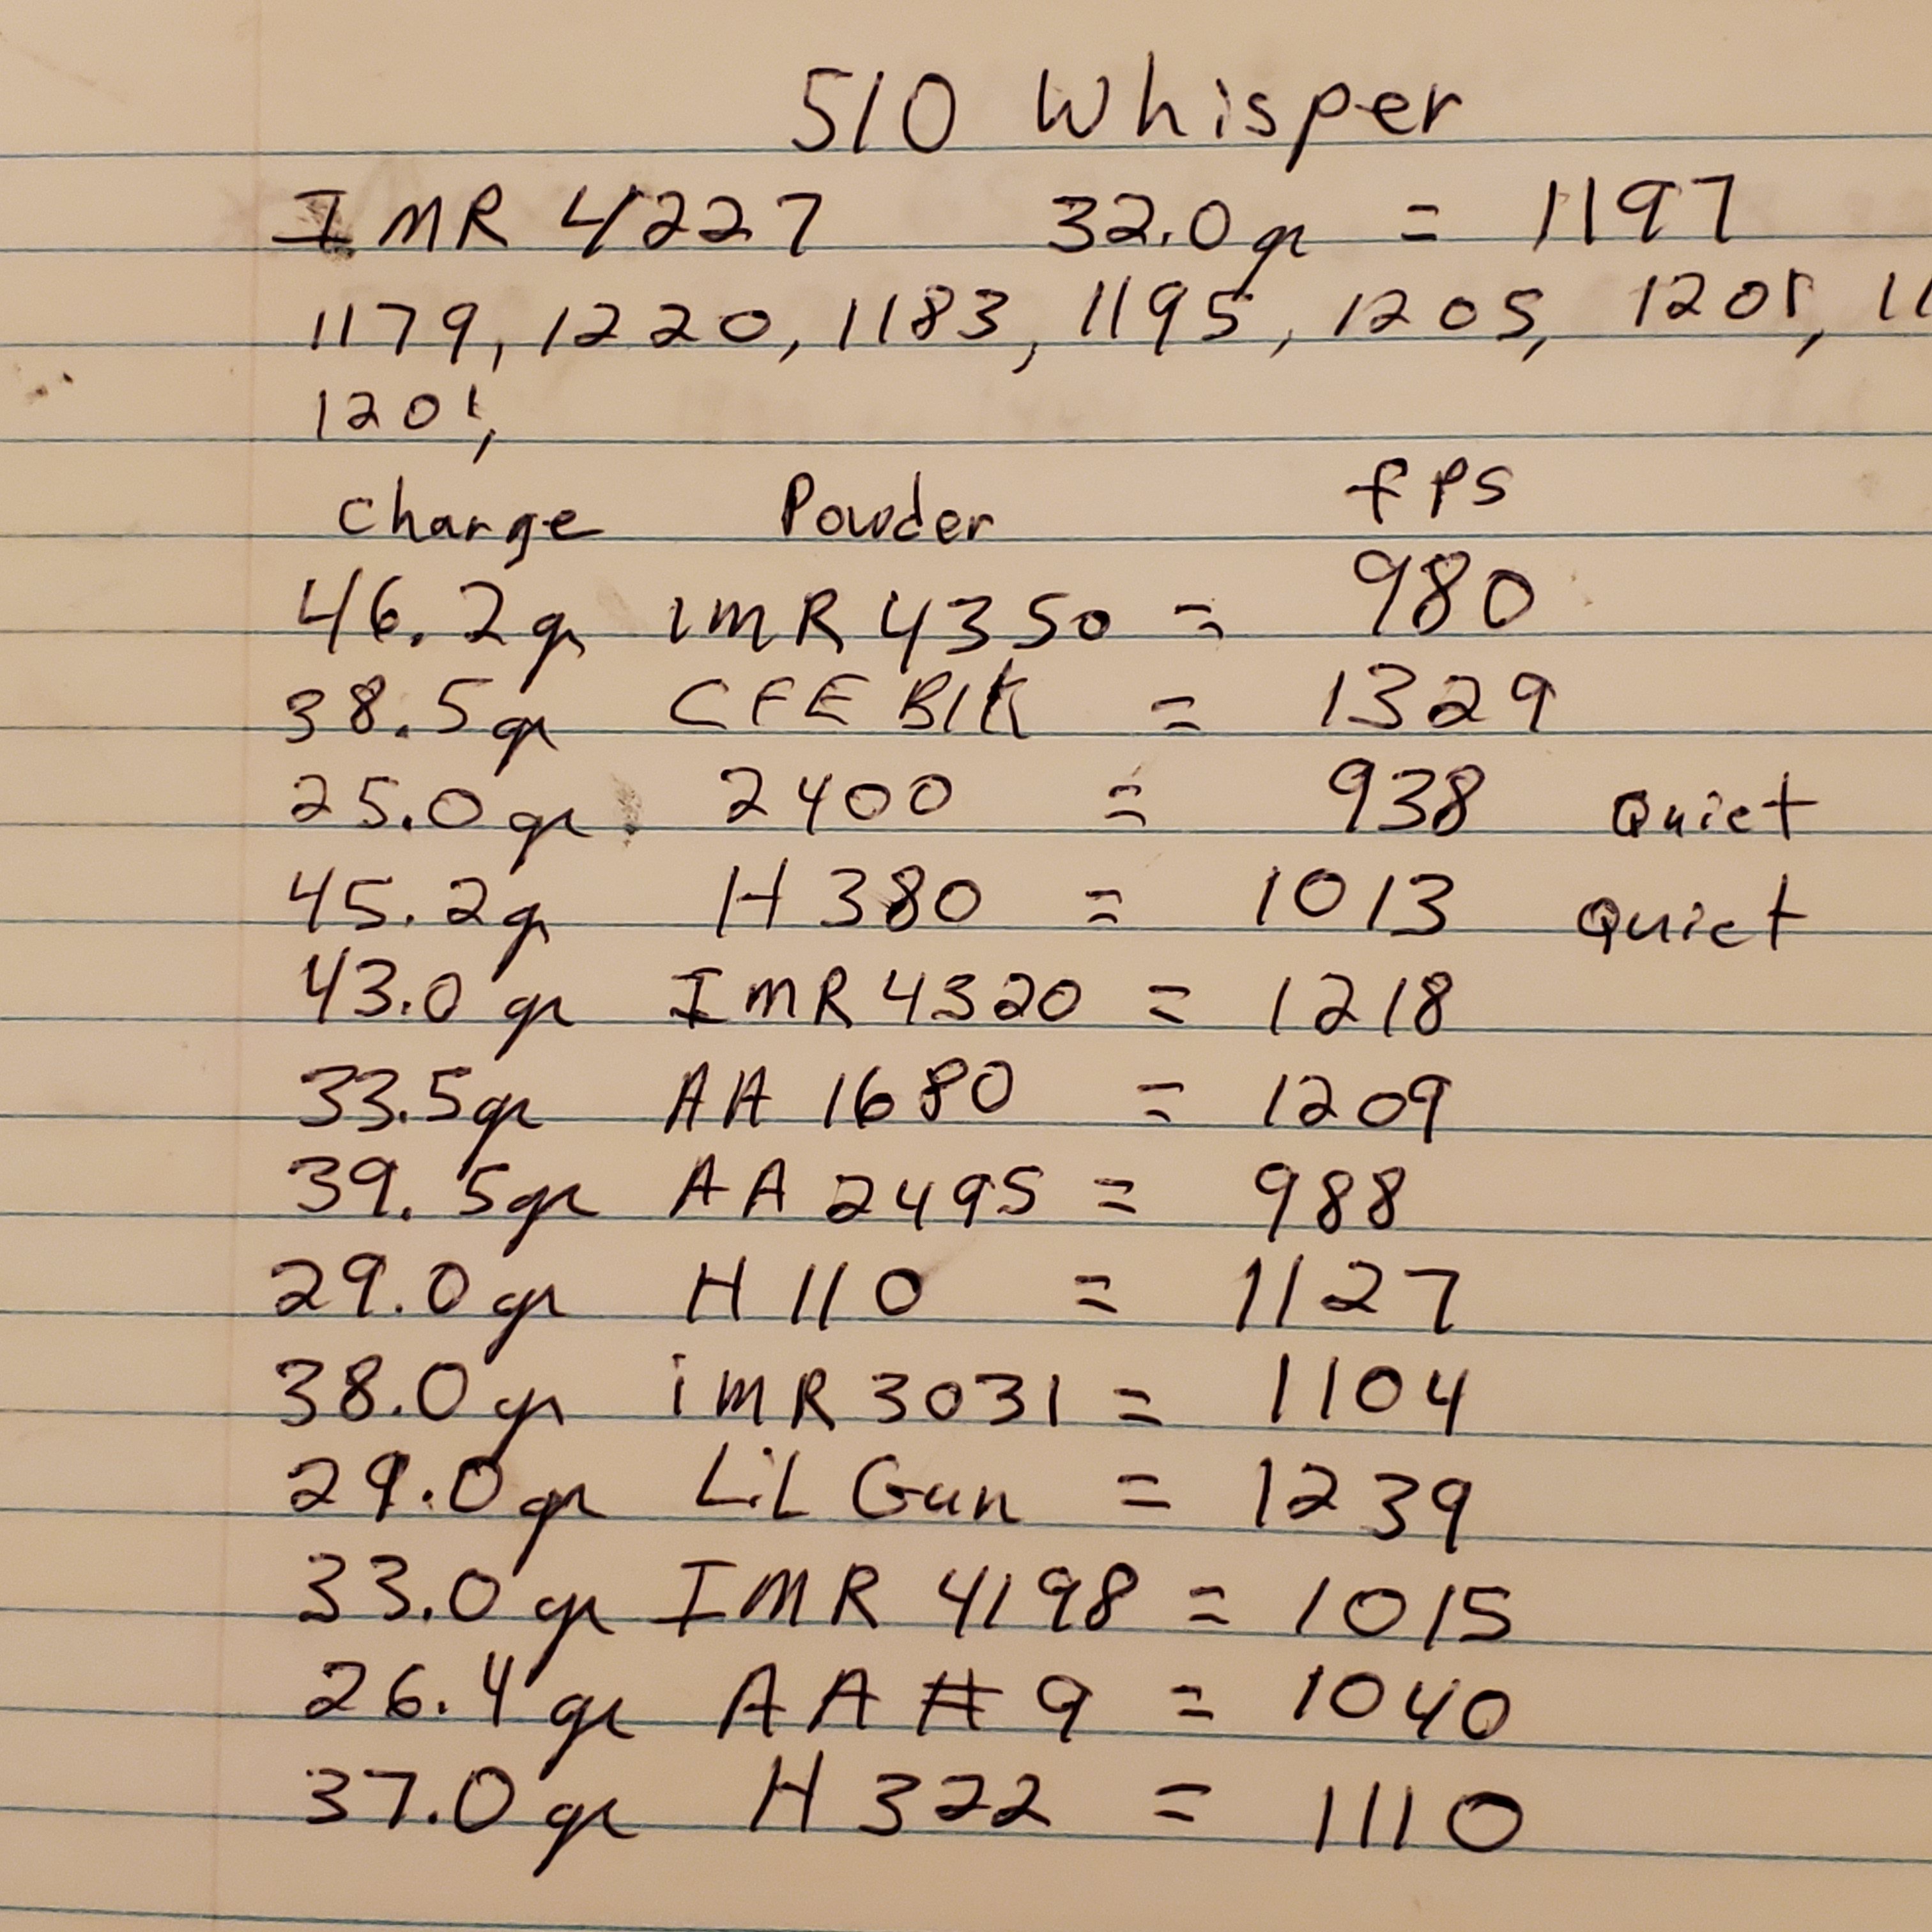 510 Whisper
IMR 4227 32.0gr = 1197
1179, 1220, 1183, 1195, 1205, 1201, 11
1201,
Charge Powder fps
46.2gr imR 4350 = 980
38.5gr CFE Blk = 1329
25.0gr. 2400 = 938 Quiet
45.2gr H 380 = 1013 Quiet
43.0gr ImR 4320 = 1218
33.5gr AA 1680 = 1209
39.5gr AA 2495 = 988
29.0gr H 110 = 1127
38.0gr imR 3031 = 1104
29.0gr LiL Gun = 1239
33.0gr IMR 4198 = 1015
26.4gr AA # 9 = 1040
37.0gr H 322 = 1110